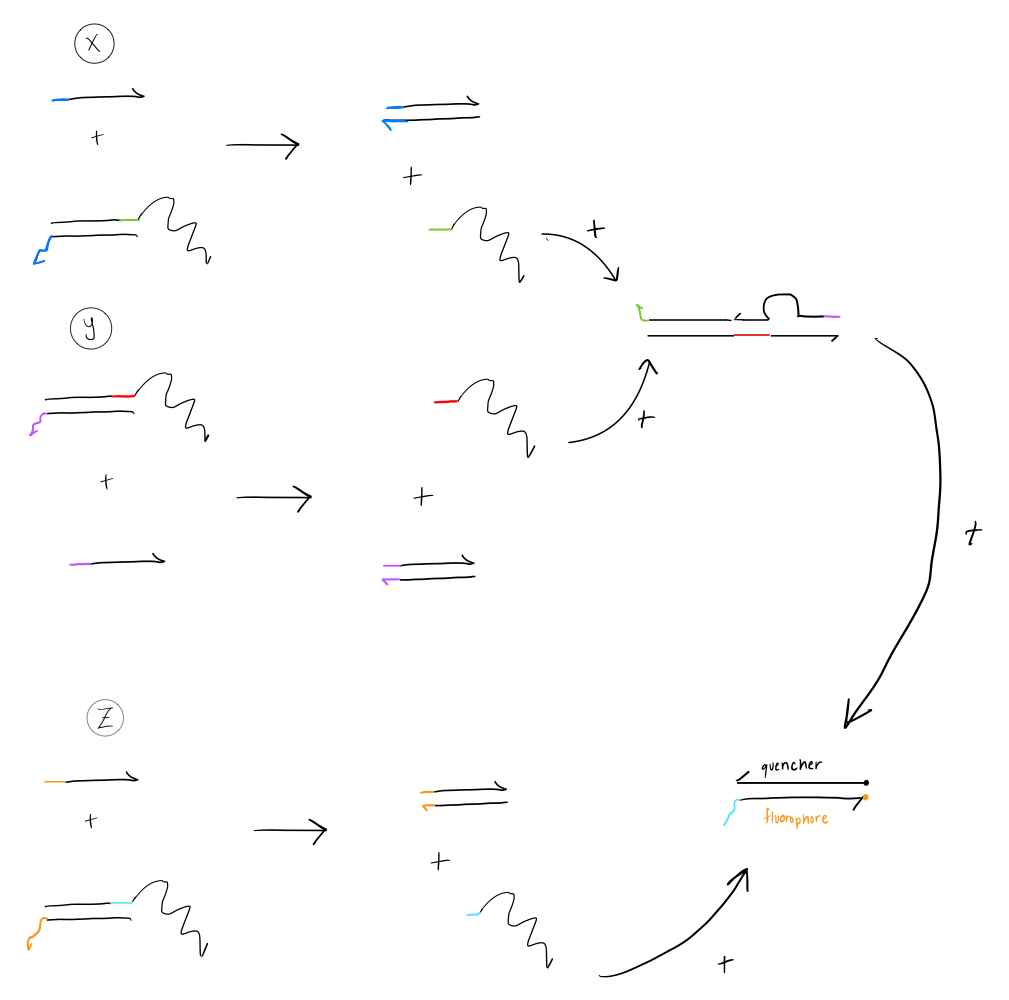 X
+
+
+
y
+
+
+
+
Z
quencher
+
fluorophore
+
+